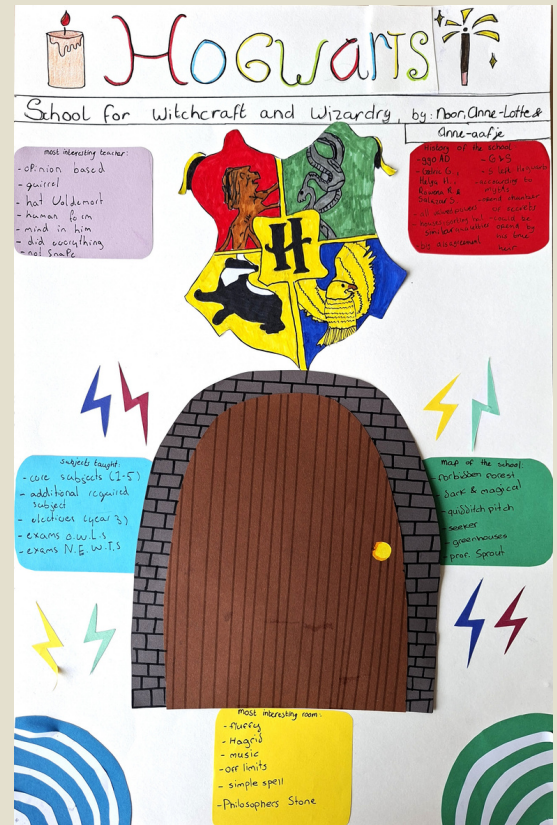 Hogwarts
School for Witchcraft and Wizardry, by: Noor, Anne-Lotte &
Anne-aafje
most interesting teacher:
- opinion based
- quirrel
- hat Voldemort
- human form
- mind in him
- did everything
- not Snape
History of the school
- 990 AD
- Helga H.
- Rowena R. &
Salazar S.
- G & S
- S left Hogwarts
- according to
myths
chamber
of secrets
- by assignment
heir
H
subjects taught:
- core subjects (1-5)
- additional required
subject
- electives (year 3)
- exams O.W.L.s
- exams N.E.W.T.S
map of the school:
- forbidden forest
- dark & magical
- quidditch pitch
- seeker
- greenhouses
- prof. Sprout
most interesting room:
- fluffy
- Hagrid
- music
- off limits
- simple spell
- Philosophers Stone